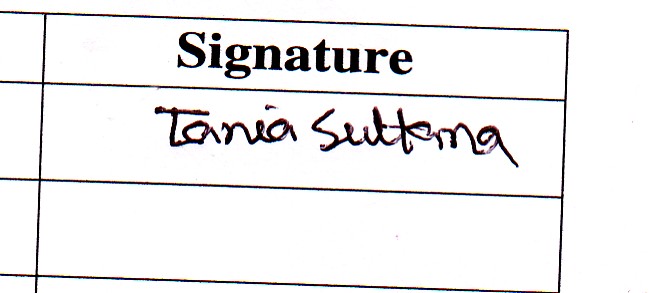 Signature
Tania Sultana